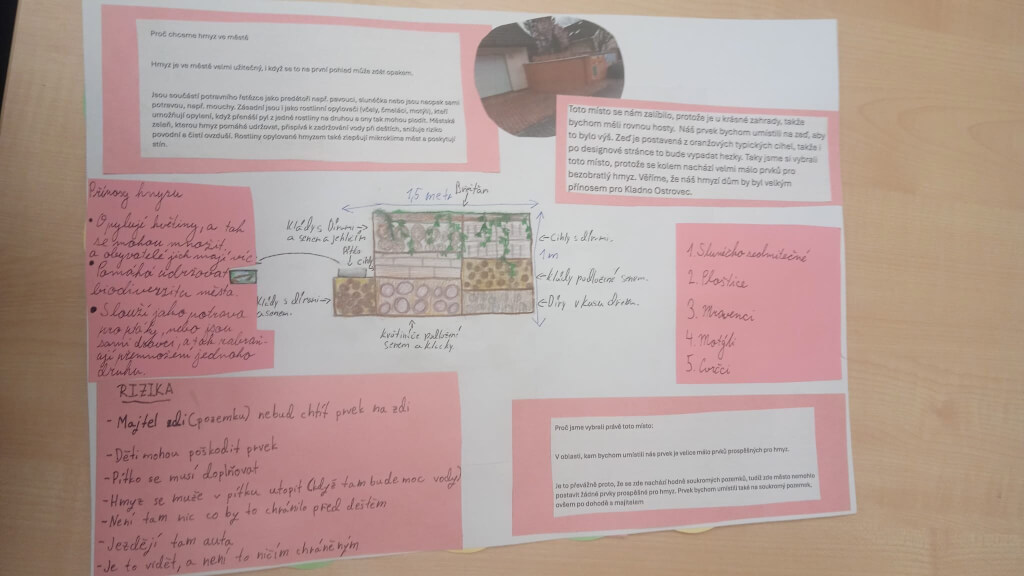 Proč chceme hmyz ve městě
Hmyz je ve městě velmi užitečný, i když se to na první pohled může zdát opakem.
Jsou součástí potravního řetězce jako predátoři např. pavouci, slunéčka nebo jsou naopak sami
potravou, např. mouchy. Zásadní jsou i jako rostlinní opylovači (včely, čmeláci, motýli), kteří
umožňují opylení, když přenáší pyl z jedné rostliny na druhou a ony tak mohou plodit. Městská
zeleň, kterou hmyz pomáhá udržovat, přispívá k zadržování vody při deštích, snižuje riziko
povodní a čistí ovzduší. Rostliny opylované hmyzem také zlepšují mikroklima měst a poskytují
stín.
Toto místo se nám zalíbilo, protože je u krásné zahrady, takže
bychom měli rovnou hosty. Náš prvek bychom umístili na zeď, aby
to bylo výš. Zeď je postavená z oranžových typických cihel, takže i
po designové stránce to bude vypadat hezky. Taky jsme si vybrali
toto místo, protože se kolem nachází velmi málo prvků pro
bezobratlý hmyz. Věříme, že náš hmyzí dům by byl velkým
přínosem pro Kladno Ostrovec.
Přínosy hmyzu
• Opylují květiny, a tak
se mohou množit
a obyvatelé jich mají víc
• Pomáhá udržovat
biodiverzitu města.
• Slouží jako potrava
pro ptáky, nebo jsou
sami dravci, a tak
přemnožení jednoho
druhu.
1,5 metr
Břečťan
Klády s Dírami
a senem a jehličím
Pítko
cihly
Klády s dírami
a senem.
Cihly s dírami.
1m
klády podložené senem.
Díry v kusu dřeva.
květináče podložené
senem a klacky.
1. Slunéčko sedmitečné
2. Ploštice
3. Mravenci
4. Motýli
5. Cvrčci
RIZIKA
- Majitel zdi (pozemku) nebud chtít prvek na zdi
- Děti mohou poškodit prvek
- Pítko se musí doplňovat
- Hmyz se muže v pítku utopit (když tam bude moc vody)
- Není tam nic co by to chránilo před deštěm
- Jezdějí tam auta
- Je to vidět, a není to ničím chráněným
Proč jsme vybrali právě toto místo:
V oblasti, kam bychom umístili nás prvek je velice málo prvků prospěšných pro hmyz.
Je to převážně proto, že se zde nachází hodně soukromých pozemků, tudíž zde město nemohlo
postavit žádné prvky prospěšné pro hmyz. Prvek bychom umístili také na soukromý pozemek,
ovšem po dohodě s majitelem